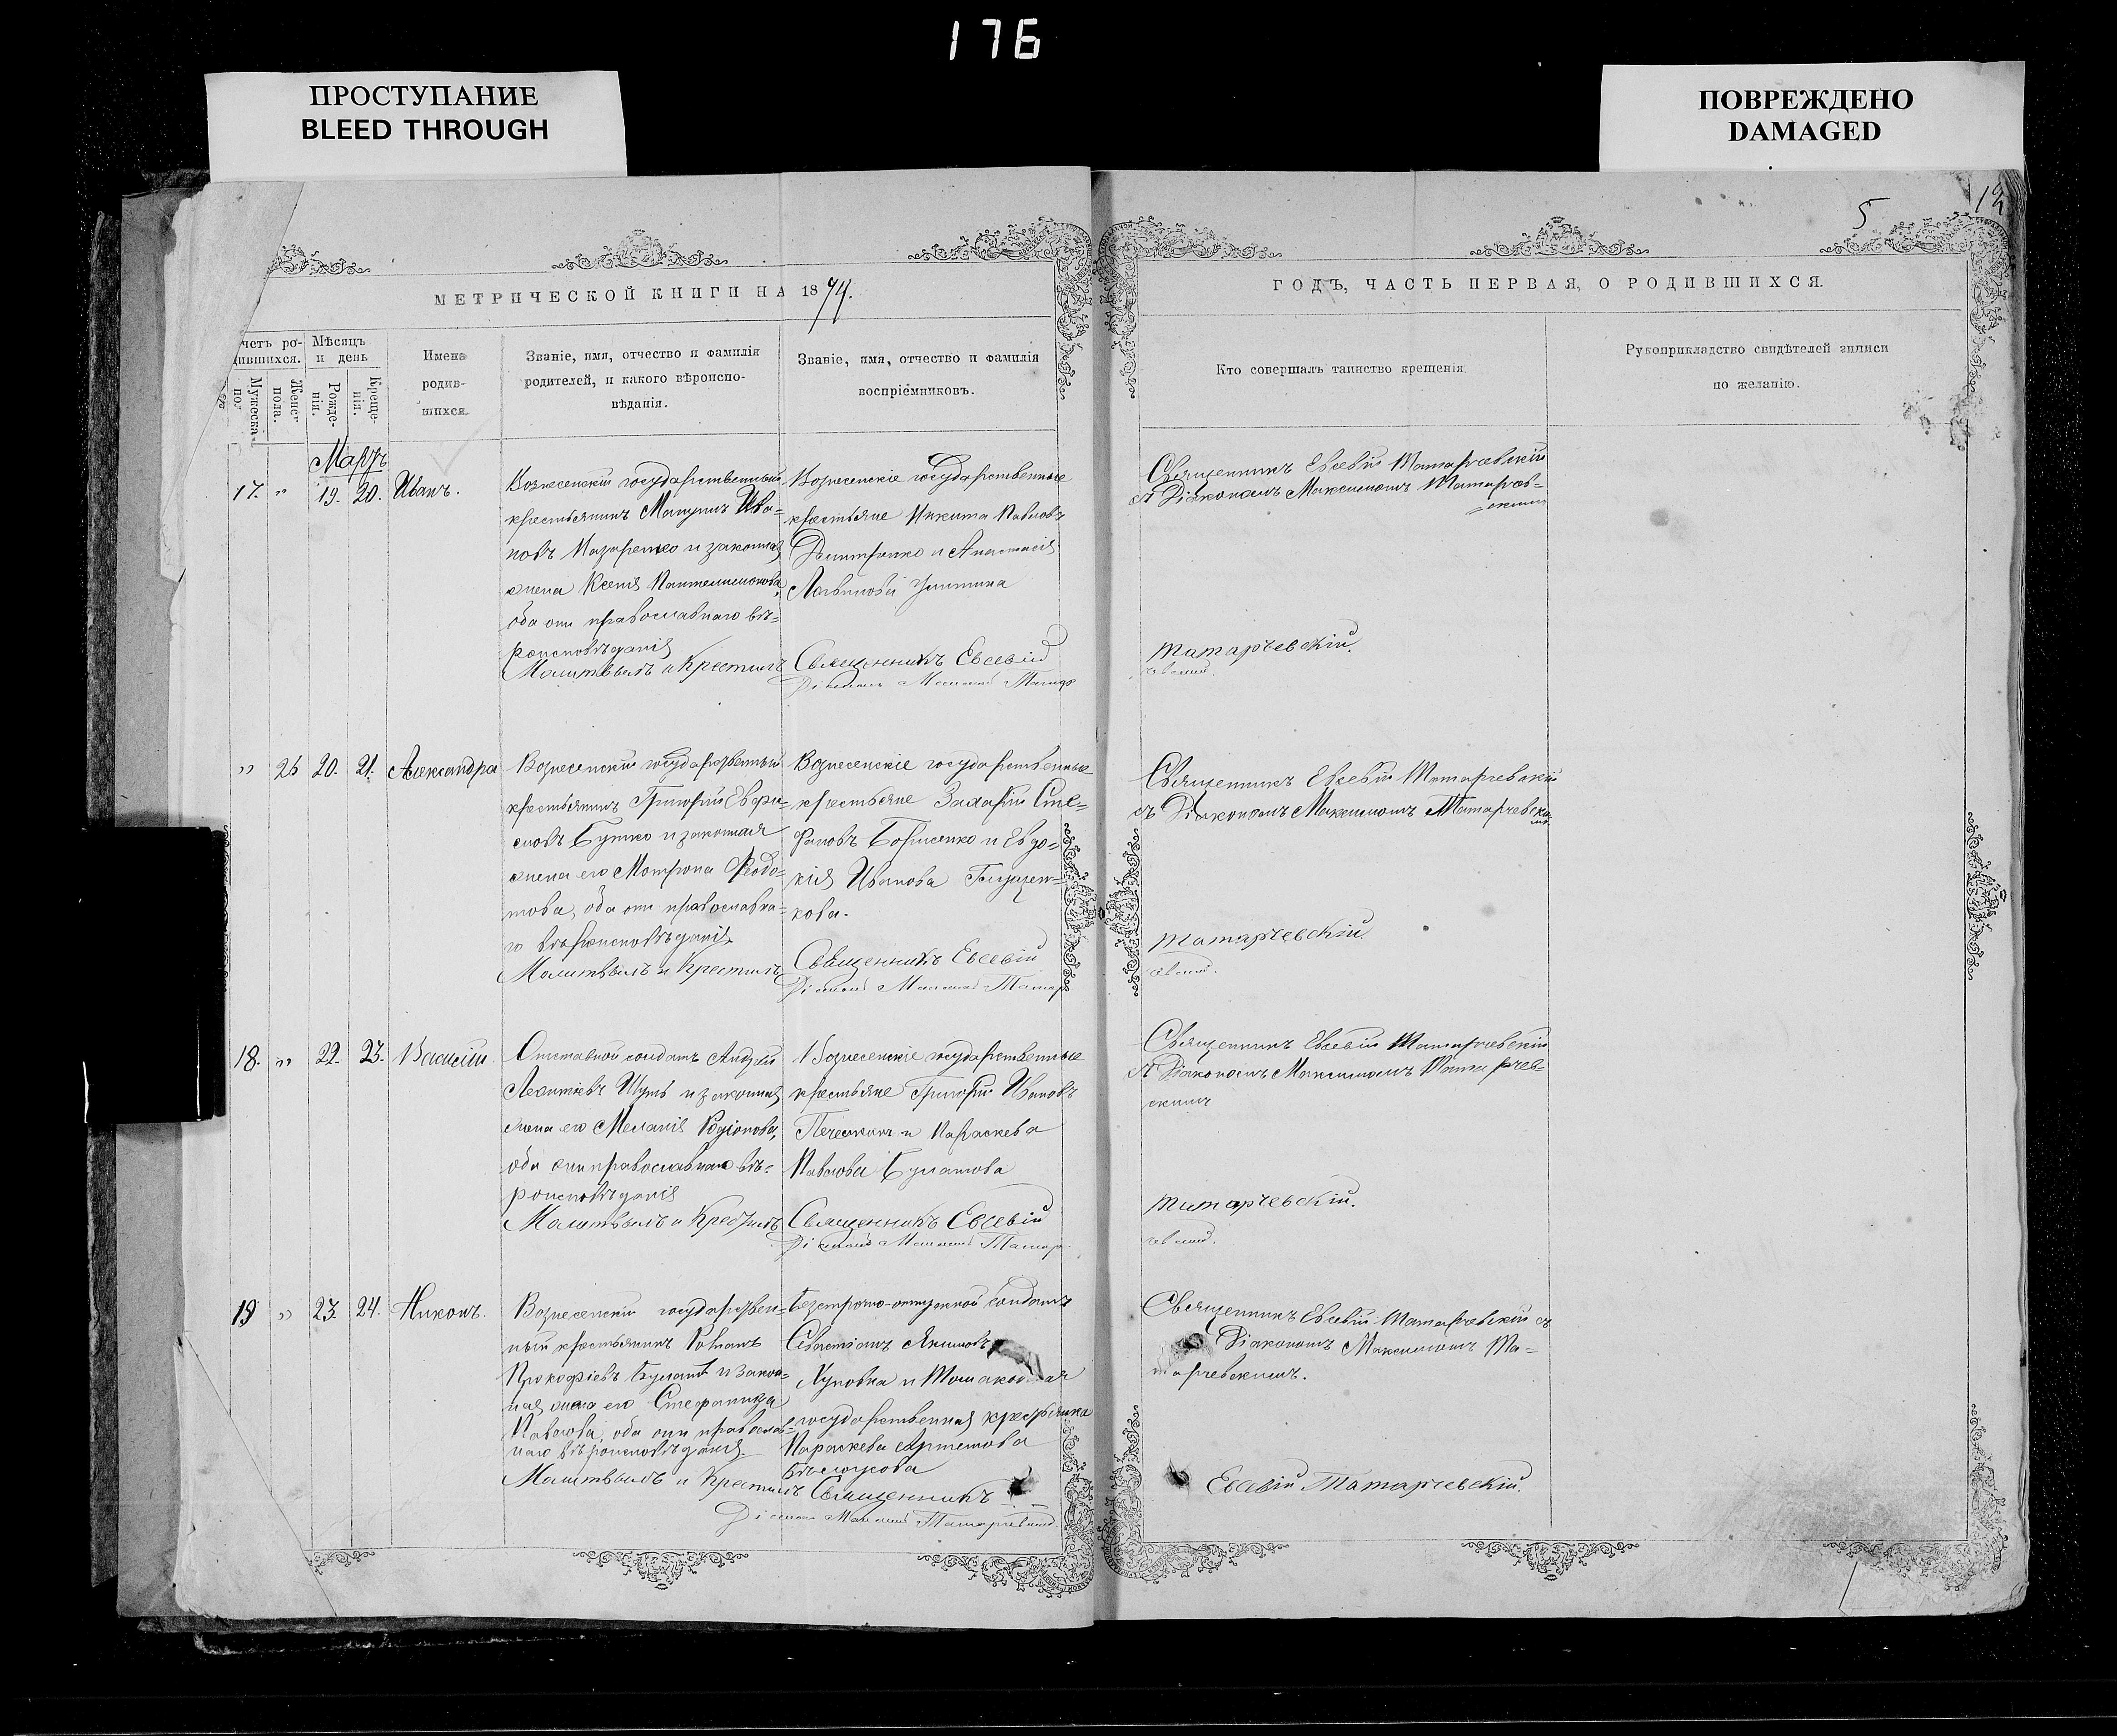 176
ПРОСТУПАНИЕ
BLEED THROUGH
ПОВРЕЖДЕНО
DAMAGED
5
МЕТРИЧЕСКОЙ КНИГИ НА 1874.
ГОДЪ, ЧАСТЬ ПЕРВАЯ, О РОДИВШИХСЯ.
четъ ро-
дившихся.
Мужеска
пол
Женск
пола.
Мѣсяцъ
и день
Рожде-
нія.
Креще-
нія.
Имена
родив-
шихся.
Званіе, имя, отчество и фамилія
родителей, и какого вѣроиспо-
вѣданія.
Званіе, имя, отчество и фамилія
воспріемниковъ.
Кто совершалъ таинство крещенія.
Рукоприкладство свидѣтелей записи
по желанію.
Мартъ
17. " 19. 20. Иванъ.
Вознесенскій государственный
крестьянинъ Ива-
новъ Назаренко и законная
жена Ксенія Пантелеимонова,
оба они православнаго вѣ-
роисповѣданія
Молитвилъ и Крестилъ
Вознесенскіе государственные
крестьяне Никита Павловъ
Дмитренко и Анастасія
Священникъ Евсевій
Священникъ Евсевій Татарчевскій
съ Діакономъ Максимомъ Татарчев-
скимъ
Татарчевскій.
" 26 20. 21. Александра
Вознесенскій государственный
крестьянинъ Григорій
и законная
жена его Мотрона Федо-
това, оба они православна-
го вѣроисповѣданія.
Молитвилъ и Крестилъ
Вознесенскіе государственные
крестьяне Захарій Сте-
фановъ Борисенко и Евдо-
кія Иванова
кова.
Священникъ Евсевій
Священникъ Евсевій Татарчевскій
съ Діакономъ Максимомъ Татарчевскимъ
Татарчевскій.
18. " 22. 23. Василій.
Отставной солдатъ Андрей
и законная
жена его Меланія Родіонова,
оба они православнаго вѣ-
роисповѣданія
Молитвилъ и Крестилъ
Вознесенскіе государственные
крестьяне Григорій Ивановъ
и Параскева
Павлова Булатова
Священникъ Евсевій
Священникъ Евсевій Татарчевскій
съ Діакономъ Максимомъ Татарчев-
скимъ
Татарчевскій.
19 " 23. 24. Никонъ.
Вознесенскій государствен-
ный крестьянинъ Романъ
Прокофіевъ Булатъ и закон-
ная жена его Стефанида
Павлова, оба они православ-
наго вѣроисповѣданія.
Молитвилъ и Крестилъ Священникъ
Безсрочно-отпускной солдатъ
Севастіанъ Акимовъ
государственная крестьянка
Параскева Артемова
Діаконъ Максимъ Татарчевскій
Священникъ Евсевій Татарчевскій съ
Діакономъ Максимомъ Та-
тарчевскимъ.
Евсевій Татарчевскій.